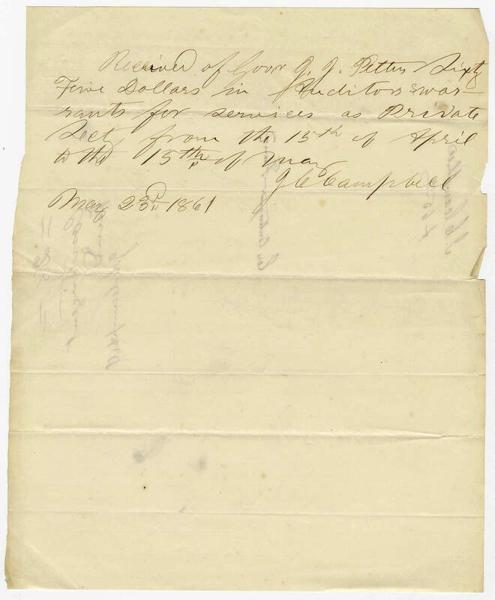 Received of Govr J. J. Pettus Sixty
Five Dollars in Auditors war-
rants for services as Private
Secty from the 15th of April
to the 15th of May
J C Campbell
May 23d 1861